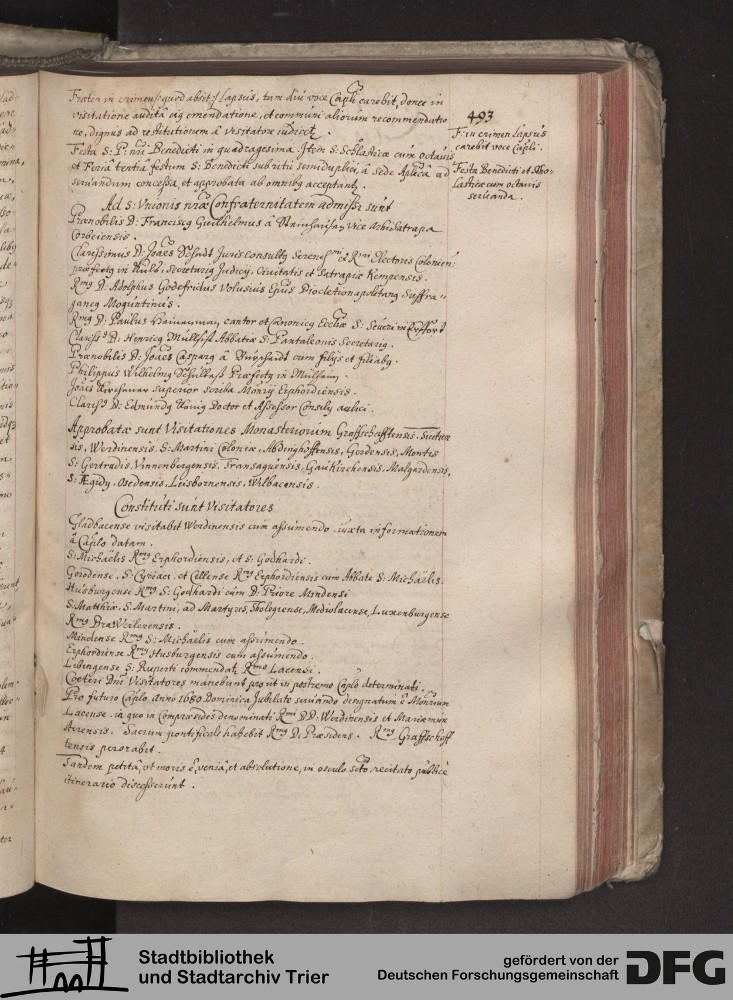 Frater in crimen /: quod absit :/ lapsus, tam diu voce Capli carebit, donec in
visitatione audita eig emendatione, et communi aliorum recommendatio
ne, dignus ad restitutionem à visitatore iudicet.
Festa S: P: nri Benedicti in quadragesima. Item S: Scholasticæ cum octavis
et Feriâ tertiâ festum S: Benedicti sub ritu semiduplici, à sede Aplica ad
seruandum concessa, et approbata ab omnibg acceptant.
493
F: in crimen lapsus
carebit voce Capli.
Festa Benedicti et Scho-
lasticæ cum octavis
seruanda.
Ad S: Vnionis nræ Confraternitatem admissi sunt
Prænobilis D: Franciscg Guilhelmus à
vice Archisatrapa
Corbeiensis.
Clarissimus D: Joaes Schadt Jurisconsultg Seren et Rmi Electoris Colonien:
præfectg in Hulß, secretarig Judicij, Civitatis et Satrapiæ Kempensis.
Rmg D: Adolphus Godefridus Volusius Epus Diocletianopolitang Suffra-
ganeg Moguntinus.
Rmg D: Paulus
cantor et Canonicg Eccliæ S: Severi in Erffort
Clariss D: Henricg
Abbatiæ S: Pantaleonis Secretarig.
Prænobilis D: Joaes Casparg à Burghardt cum filijs et filiabg.
Philippus Wilhelmg
Præfectg in
Joaes Kirchmair superior scriba Monrij Erphordiensis.
Clariss D: Edmundg König Doctor et Assessor Consilij aulici.
Approbatæ sunt Visitationes Monasteriorum Graffschafftensis. Tuitien
sis, Werdinensis, S: Martini Coloniæ, Abdinghoffensis, Gerdensis, Montis
S: Gertrudis, Vinnenbergensis, Transaquensis, Gaukirchensis, Malgardensis,
S: Ægidij, Osedensis, Leisbornensis, Wilbacensis.
Constituti sunt Visitatores
Gladbacense visitabit Werdinensis cum assumendo iuxta informationem
à Caplo datam.
S: Michaëlis Rmg Erphordiensis, et S: Godhardi.
Gerodense. S: Cyriaci, et Cellense Rmg Erphordiensis cum Abbate S: Michaëlis.
Husburgense Rmg S: Godhardi cum D: Priore Mindensi
S: Matthiæ. S: Martini, ad Martyres, Tholegiense, Mediolacense, Luxenburgense
Rmg BrauWeilerensis.
Mindense Rmg S: Michaëlis cum assumendo.
Erphordiense Rmg Husburgensis cum assumendo.
S: Ruperti commendat Rmo Lacensi.
Cœteri Dni Visitatores manebunt prout in postremo Caplo determinati.
Pro futuro Caplo Anno 1680 Dominica Jubilate seruando designatum e Monrium
Lacense. in quo in Compræsides denominati Rmi DD: Werdinensis et Mariæmun
sterensis. Sacrum pontificale habebit Rmg D: Præsidens. Rmg Graffschaff
tensis perorabit.
Tandem petitâ, vt moris e, veniâ, et absolutione, in osculo scto, recitato publicè
itinerario discesserunt.
Stadtbibliothek
und Stadtarchiv Trier
gefördert von der
Deutschen Forschungsgemeinschaft
DFG